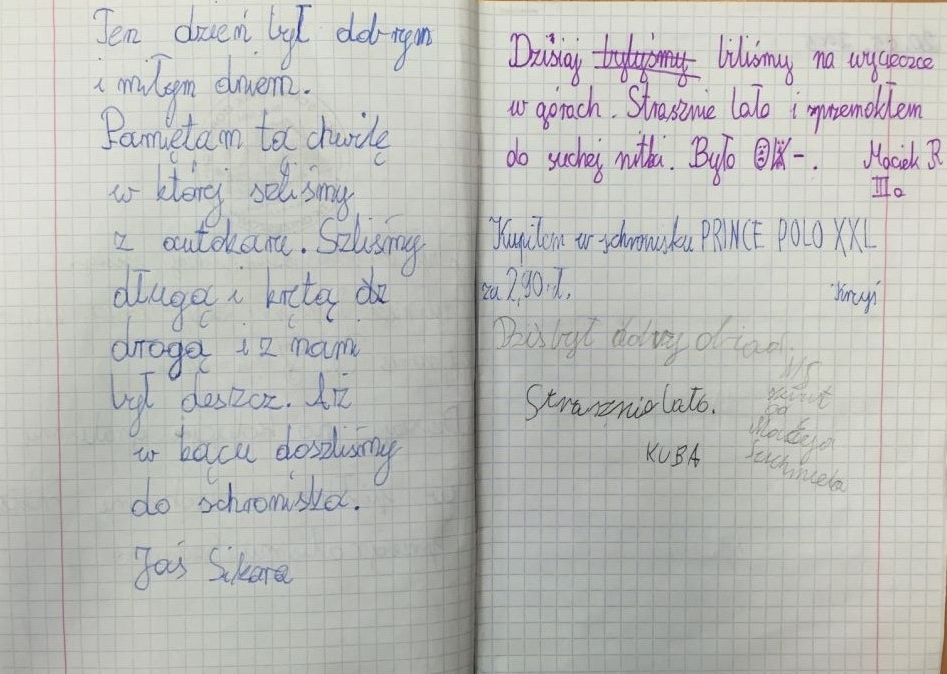 Ten dzień był dobrym
i miłym dniem.
Pamiętam tą chwilę
w której szliśmy
z autokaru. Szliśmy
długą i krętą dr
drogą i z nami
był deszcz. Aż
w kącu doszliśmy
do schroniska.
Jaś Sikora
Dzisiaj byliśmy biliśmy na wycieczce
w górach. Strasznie lało i przemokłem
do suchej nitki. Było OK-. Maciek R
IIIa
Kupiłem w schronisku PRINCE POLO XXL
za 2,90 zł. Krzyś
Dziś był dobry obiad.
Strasznie lało.
KUBA
od
Macieja